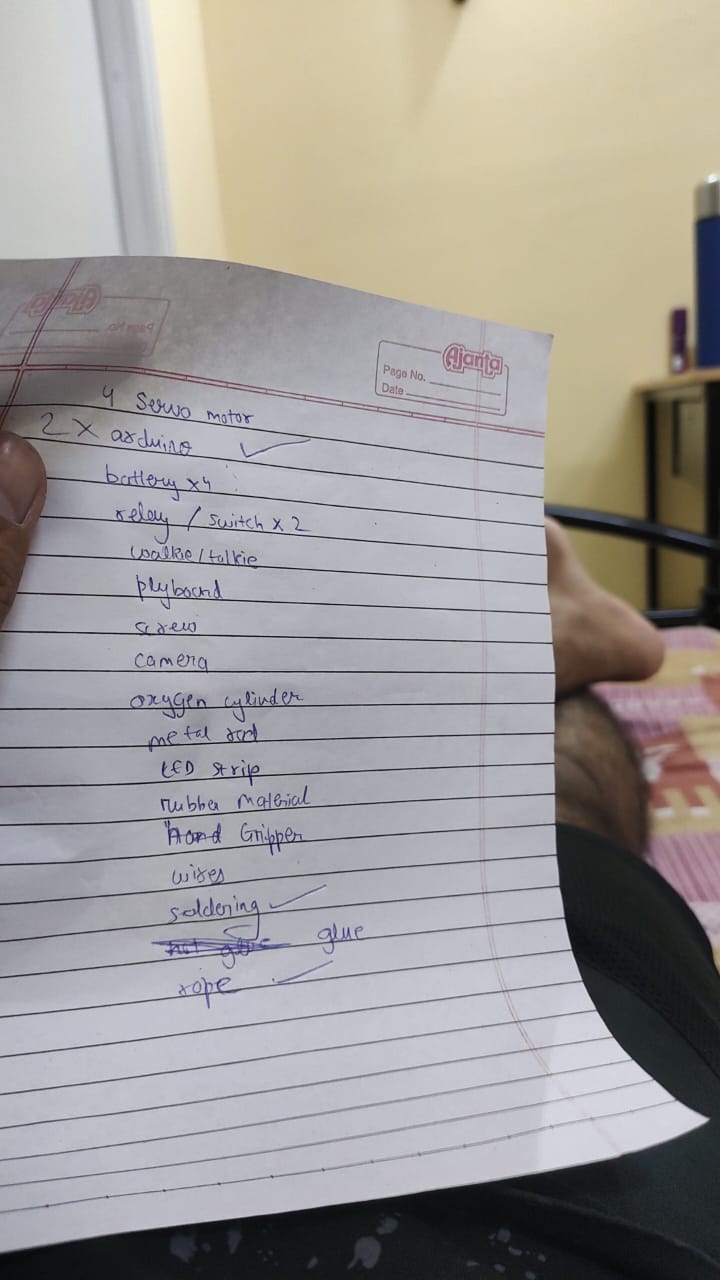 Ajanta
Page No.
Date
4 Servo motor
2 X arduino ✓
battery x4
relay / switch x 2
walkie/talkie
plyboard
screw
camera
oxygen cylinder
metal rod
LED strip
rubber material
Hand Gripper
wires
soldering ✓
hot glue glue
rope ✓